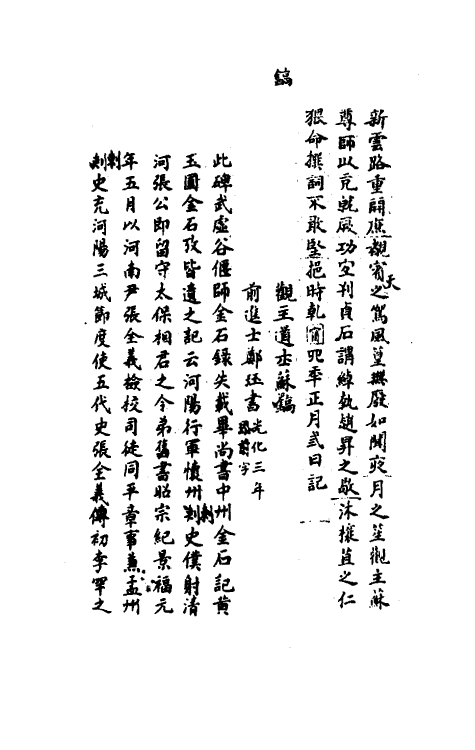 鎬
新雲路重闢廡親甯之篤風篁無廢如聞夜月之笙觀主蘇
天
尊師以克就厥功空刋貞石謂綽執趙昇之敬沐攘苴之仁
猥命撰詞不敢堅挹時乾甯四年正月貳日記
觀主道士蘇鎬
前進士鄭珏書光化三年
此碑武虛谷偃師金石錄失載畢尚書中州金石記黃
玉圃金石攷皆遺之記云河陽行軍懷州刺史僕射清
河張公即留守太保相君之令弟舊書昭宗紀景福元
年五月以河南尹張全義檢校司徒同平章事兼孟州
刺史充河陽三城節度使五代史張全義傳初李罕之